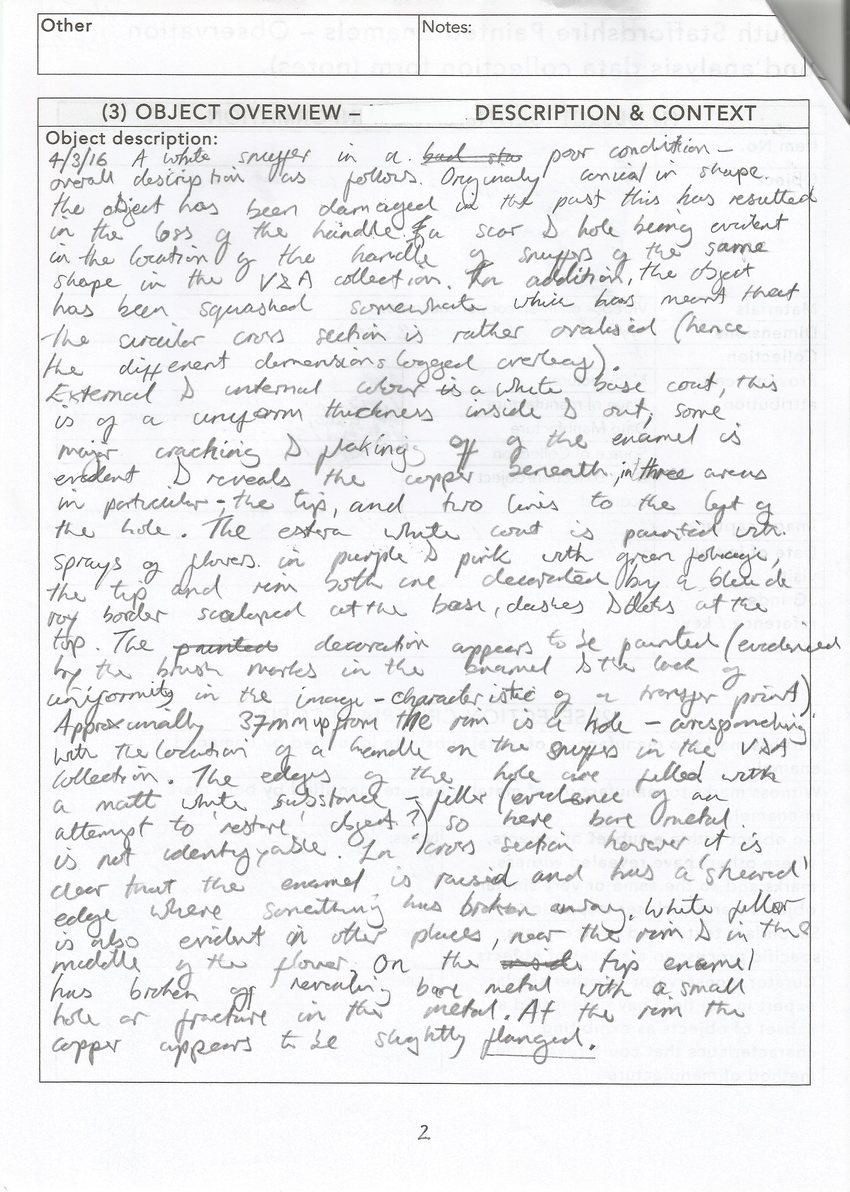 Other
Notes:
(3) OBJECT OVERVIEW – DESCRIPTION & CONTEXT
Object description:
4/3/16 A white snuffer in a poor condition –
overall description as follows. Originaly conical in shape.
the object has been damaged in the past this has resulted
in the loss of the handle & a scar & hole being evident
in the location of the handle of snuffers of the same
shape in the V&A collection. In addition, the object
has been squashed somewhate which has meant that
the circular cross section is rather ovalised (hence
the different demensions logged overleaf).
External & internal colour is a white base coat, this
is of a uniform thickness inside & out, some
major cracking & flaking off of the enamel is
evident & reveals the copper beneath, in three areas
in particular – the tip, and two lines to the left of
the hole. The white coat is painted with
sprays of flowers in purple & pink with green foliage,
the tip and rim both are decorated by a bleu de
roy border scaloped at the base, dashes & dots at the
top. The painted decoration appears to be painted (evidenced
by the brush marks in the enamel & the lack of
uniformity in the image – characteristic of a transfer print)
Approximally 37mm up from the rim is a hole – corresponding
with the location of a handle on the snuffers in the V&A
collection. The edges of the hole are filled with
a matt white substance – filler (evidence of an
attempt to 'restore' object?) so here bare metal
is not identifyable. In cross section however it is
clear that the enamel is raised and has a 'sheared'
edge where something has broken away. White filler
is also evident in other places, near the rim & in the
middle of the flower. On the tip enamel
has broken off revealing bare metal with a small
hole or fracture in the metal. At the rim the
copper appears to be slightly flanged.
2